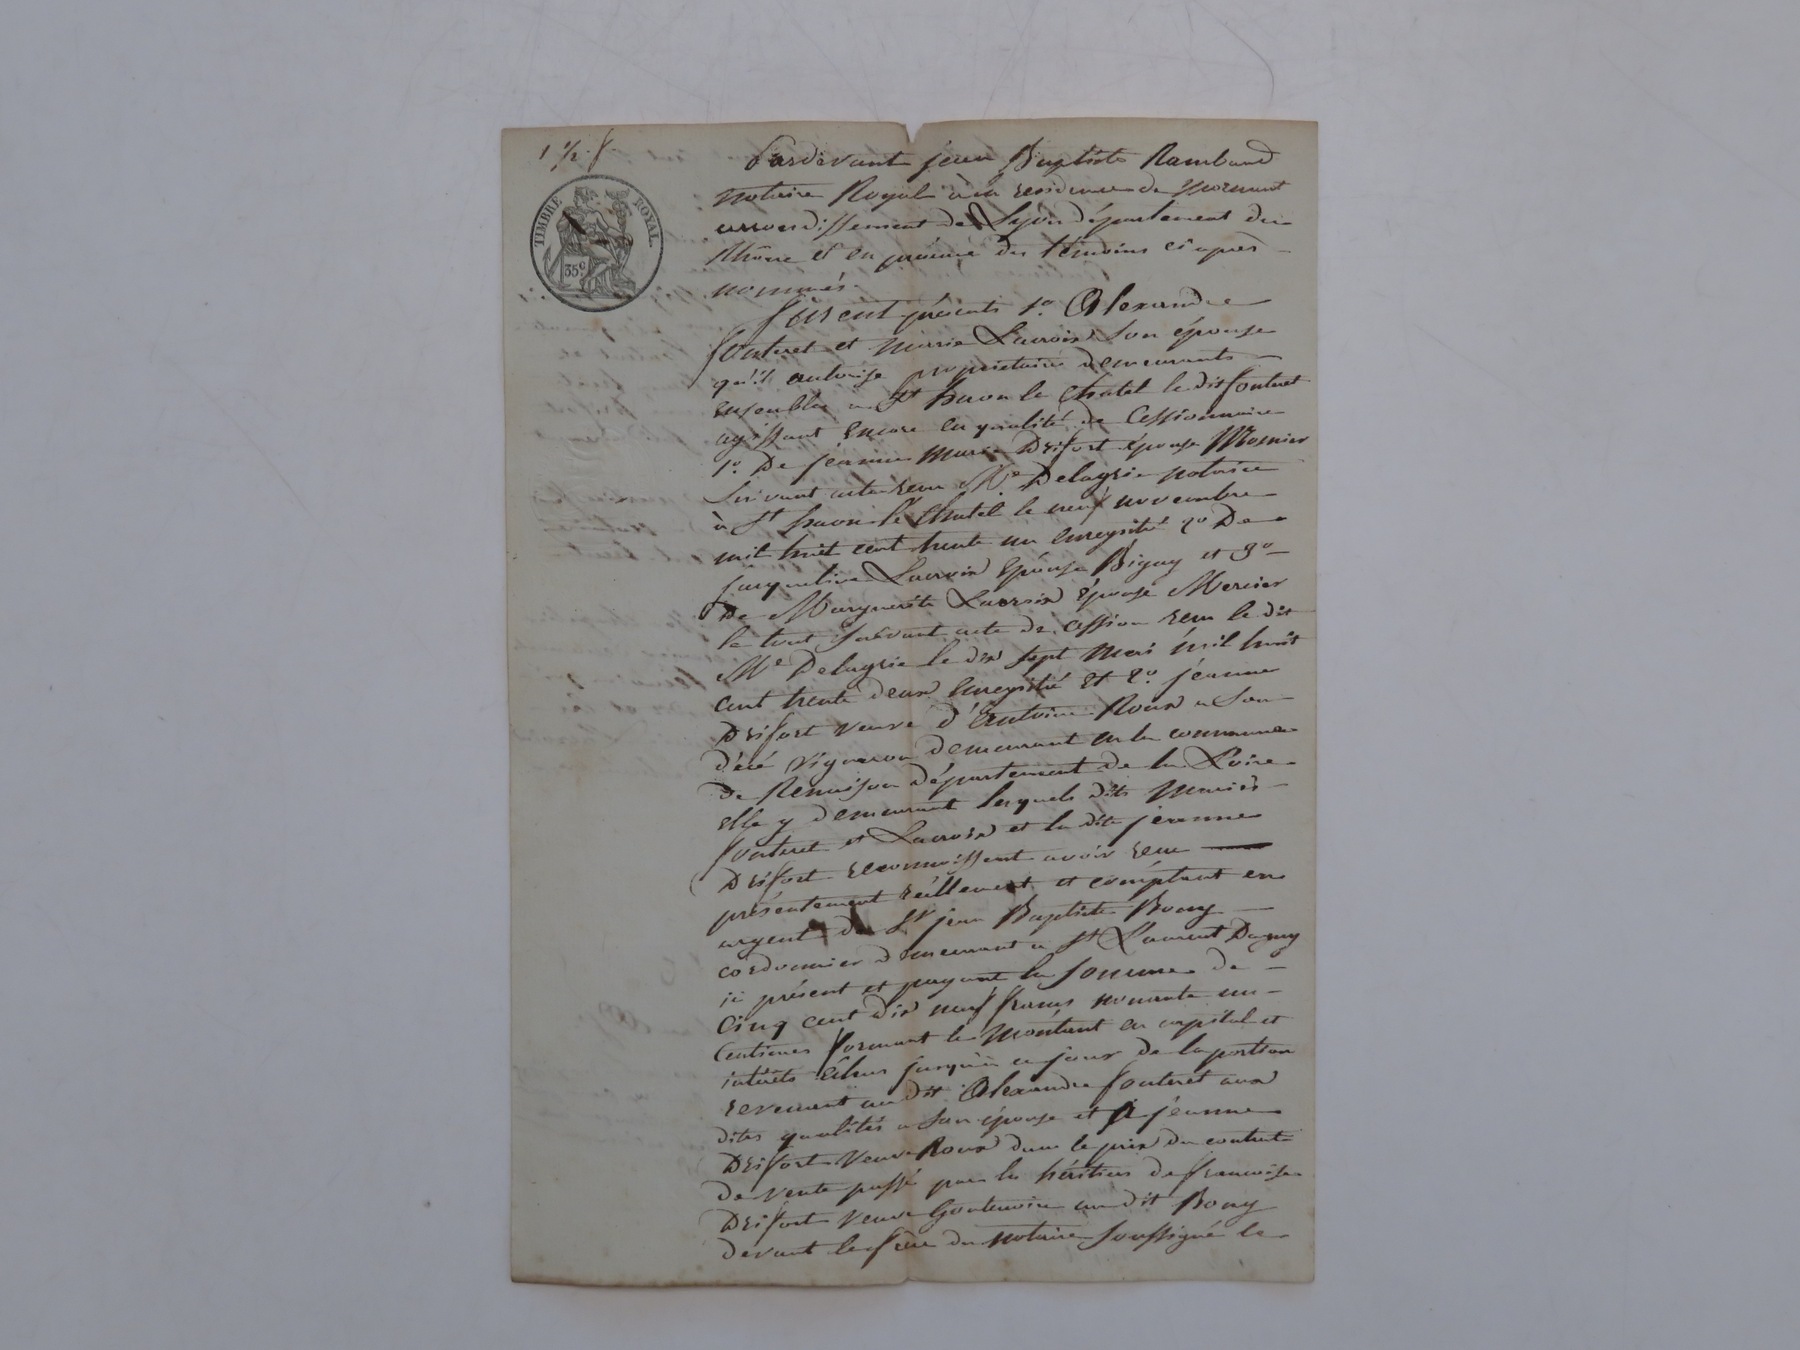 1 1/2 f
TIMBRE ROYAL
35c
Pardevant jean Baptiste Rambaud
notaire Royal à la residence de Mornant
arrondissement de Lyon département du
Rhône et en présence des témoins ci après
nommés.
furent présents 1º. Alexandre
fonteret et marie Lacroix son épouse
qu'il autorise propriétaires demeurants
ensemble à St haon le Chatel le dit fonteret
agissant encore en qualité de Cessionnaire
1º. De jeanne Marie Desfort épouse Mosnier
suivant acte reçu Me. Delagrie notaire
à St haon le Chatel le neuf novembre
mil huit cent trente un enregistré 2º De
jacqueline Lacroix épouse Bigay et 3º
De Marguerite Lacroix épouse Mercier
le tout suivant acte de cession reçu le dit
Me Delagrie le dix sept Mai mil huit
cent trente deux enregistré et 2º. jeanne
Desfort veuve d'Antoine Roux a son
décé vigneron demeurant en la commune
de Renaison département de la Loire
elle y demeurant lesquels dits mariés
fonteret et Lacroix et la dite jeanne
Desfort reconnoissent avoir reçu
présentement réellement et comptant en
argent de Sr jean Baptiste Bony
cordonnier demeurant a St Laurent Dagny
ici présent et payant la somme de
Cinq cent dix neuf francs nonante un
Centimes formant le Montant en capital et
intérêts échus jusqu'à ce jour de la portion
revenant au dit Alexandre fonteret aux
dites qualités a son épouse et à jeanne
Desfort veuve Roux dans le prix du contrat
de vente passé par les héritiers de francoise
Desfort veuve Goutenoire au dit Bony
devant le frère du notaire soussigné le